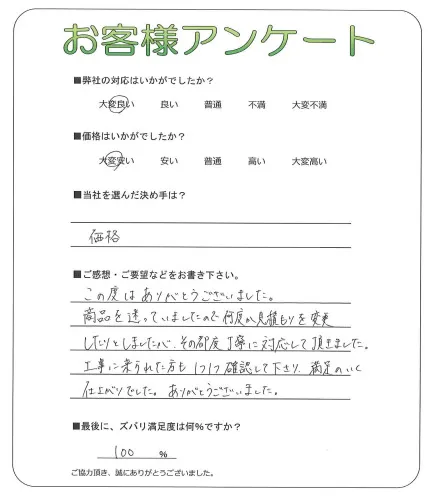 お客様アンケート
■弊社の対応はいかがでしたか？
大変良い 良い 普通 不満 大変不満
■価格はいかがでしたか？
大変安い 安い 普通 高い 大変高い
■当社を選んだ決め手は？
価格
■ご感想・ご要望などをお書き下さい。
この度はありがとうございました。
商品を迷っていましたので何度か見積もりを変更
したりとしましたが、その都度丁寧に対応して頂きました。
工事に来られた方も1つ1つ確認して下さり、満足のいく
仕上がりでした。ありがとうございました。
■最後に、ズバリ満足度は何%ですか？
100 %
ご協力頂き、誠にありがとうございました。